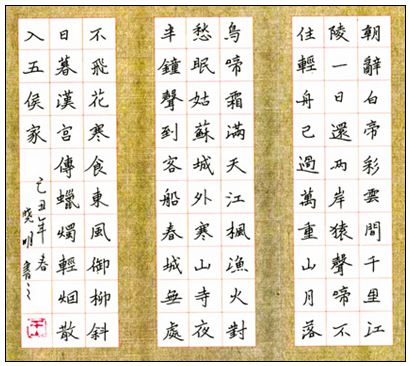 朝辭白帝彩雲間千里江
陵一日還兩岸猿聲啼不
住輕舟已過萬重山月落
烏啼霜滿天江楓漁火對
愁眠姑蘇城外寒山寺夜
半鐘聲到客船春城無處
不飛花寒食東風御柳斜
日暮漢宮傳蠟燭輕烟散
入五侯家
己丑年春
晓明書之